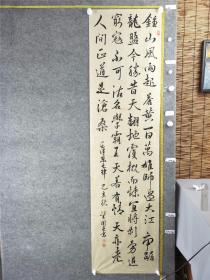 鐘山風雨起蒼黄百萬雄師過大江虎踞
龍盤今勝昔天翻地覆慨而慷宜將剩勇追
窮寇不可沽名學霸王天若有情天亦老
人間正道是滄桑 毛澤東七律 己亥秋 書